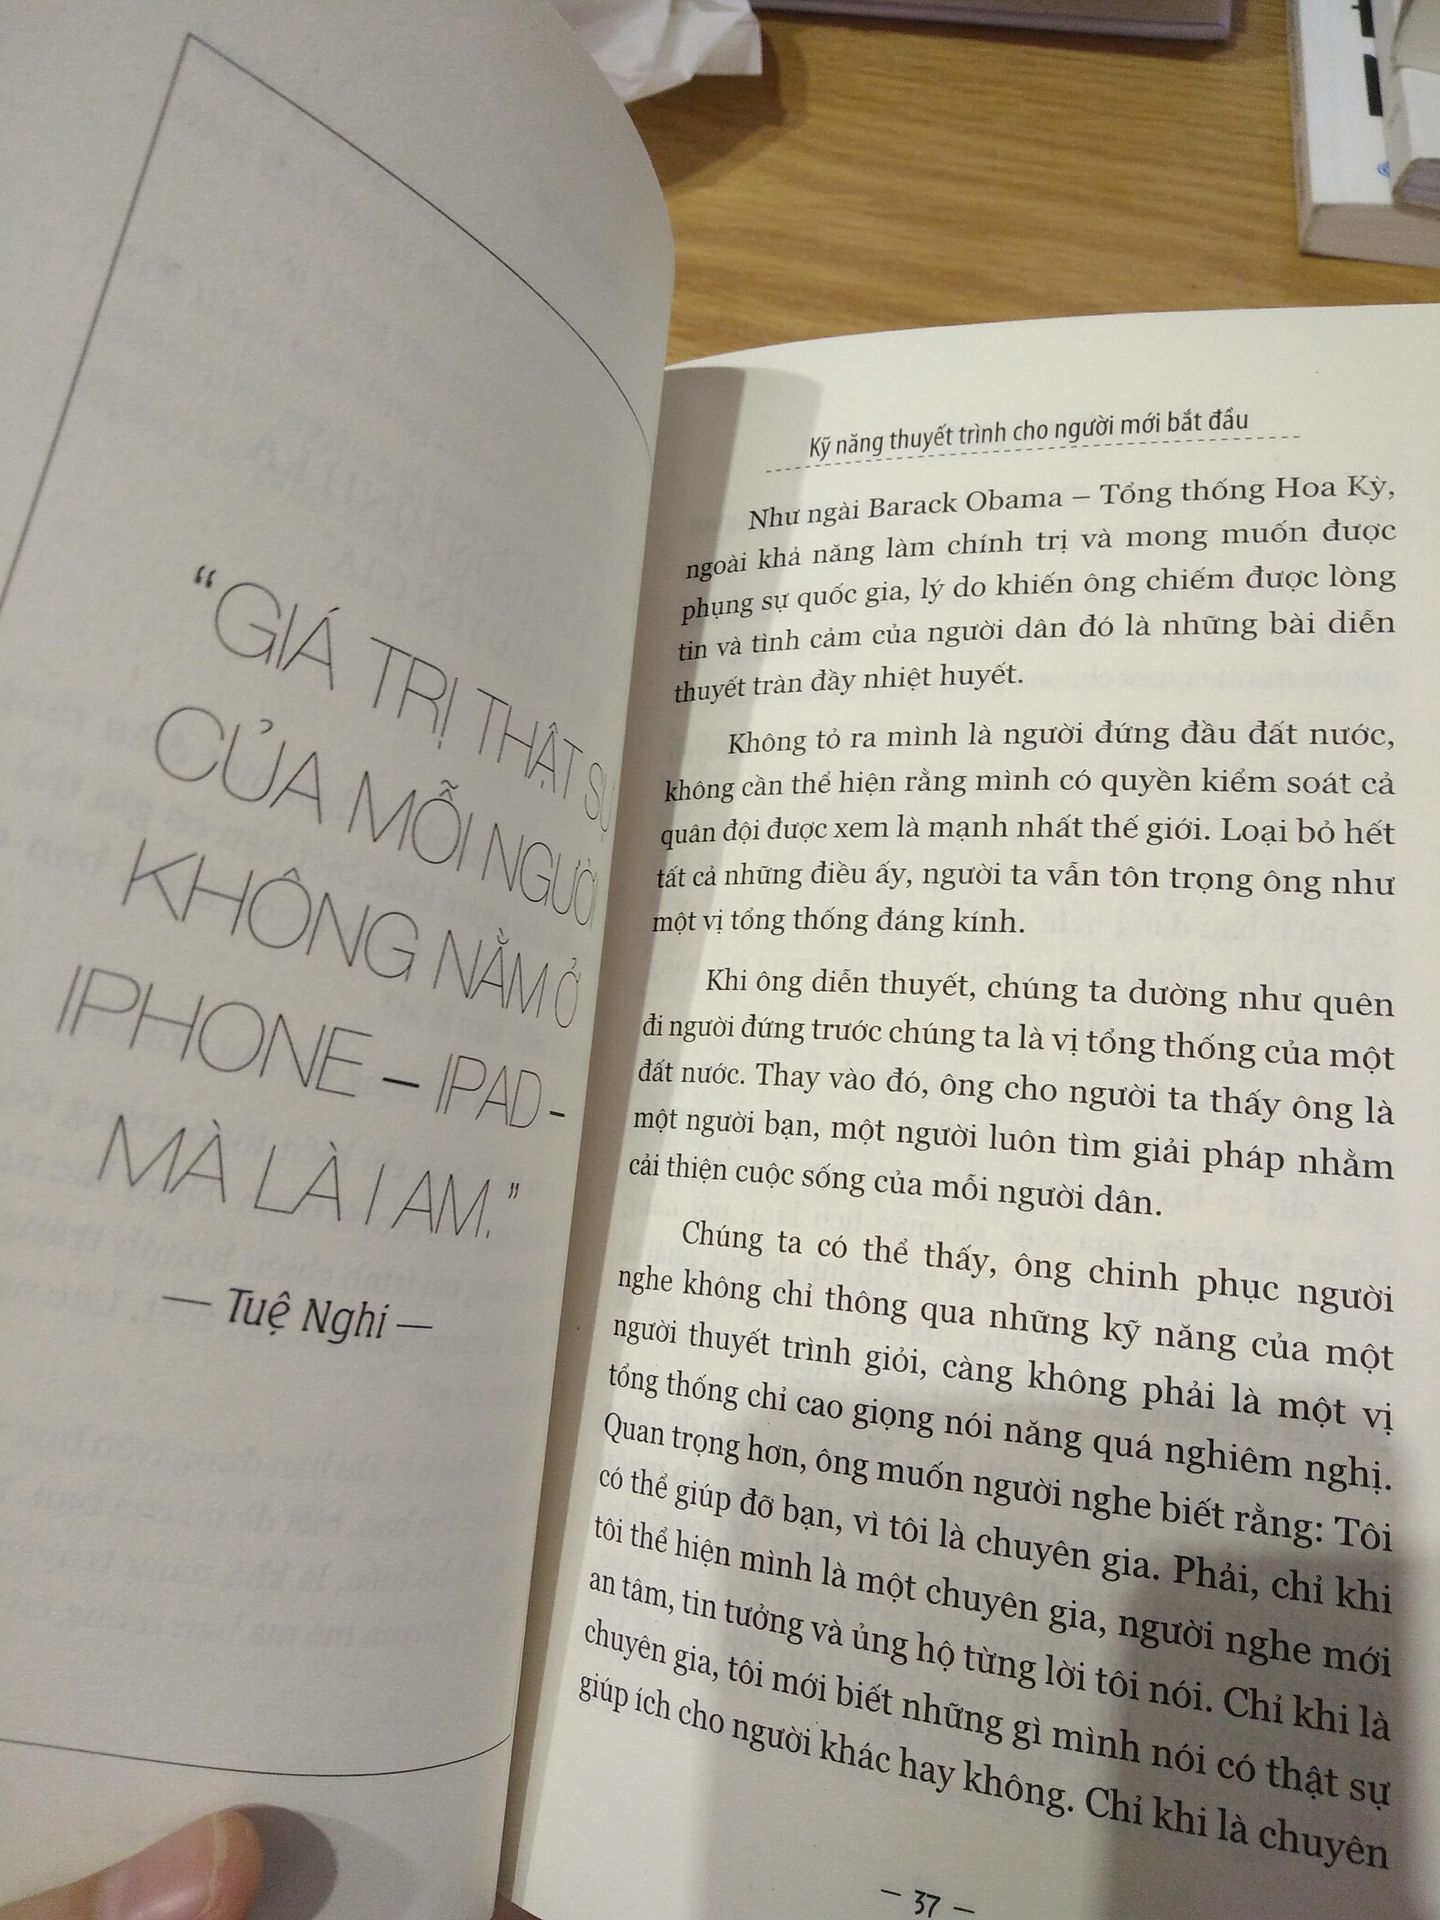 “GIÁ TRỊ THẬT SỰ
CỦA MỖI NGƯỜI
KHÔNG NẰM Ở
IPHONE – IPAD -
MÀ LÀ I AM.”
— Tuệ Nghi —
Kỹ năng thuyết trình cho người mới bắt đầu
Như ngài Barack Obama – Tổng thống Hoa Kỳ,
ngoài khả năng làm chính trị và mong muốn được
phụng sự quốc gia, lý do khiến ông chiếm được lòng
tin và tình cảm của người dân đó là những bài diễn
thuyết tràn đầy nhiệt huyết.
Không tỏ ra mình là người đứng đầu đất nước,
không cần thể hiện rằng mình có quyền kiểm soát cả
quân đội được xem là mạnh nhất thế giới. Loại bỏ hết
tất cả những điều ấy, người ta vẫn tôn trọng ông như
một vị tổng thống đáng kính.
Khi ông diễn thuyết, chúng ta dường như quên
đi người đứng trước chúng ta là vị tổng thống của một
đất nước. Thay vào đó, ông cho người ta thấy ông là
một người bạn, một người luôn tìm giải pháp nhằm
cải thiện cuộc sống của mỗi người dân.
Chúng ta có thể thấy, ông chinh phục người
nghe không chỉ thông qua những kỹ năng của một
người thuyết trình giỏi, càng không phải là một vị
tổng thống chỉ cao giọng nói năng quá nghiêm nghị.
Quan trọng hơn, ông muốn người nghe biết rằng: Tôi
có thể giúp đỡ bạn, vì tôi là chuyên gia. Phải, chỉ khi
tôi thể hiện mình là một chuyên gia, người nghe mới
an tâm, tin tưởng và ủng hộ từng lời tôi nói. Chỉ khi là
chuyên gia, tôi mới biết những gì mình nói có thật sự
giúp ích cho người khác hay không. Chỉ khi là chuyên
— 37 —